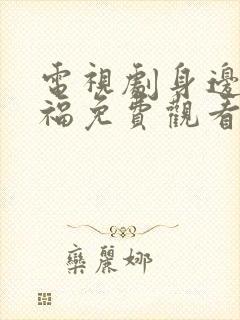 電視劇身邊
福免費觀看
欒麗娜